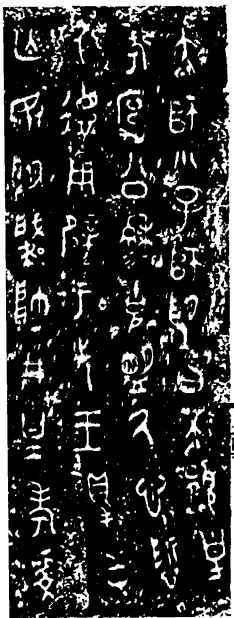 大師小子師望曰不顯皇
考宄公穆穆克盟氒心悊
氒德用辟于先王得屯
亡敃望肇帥井皇考虔